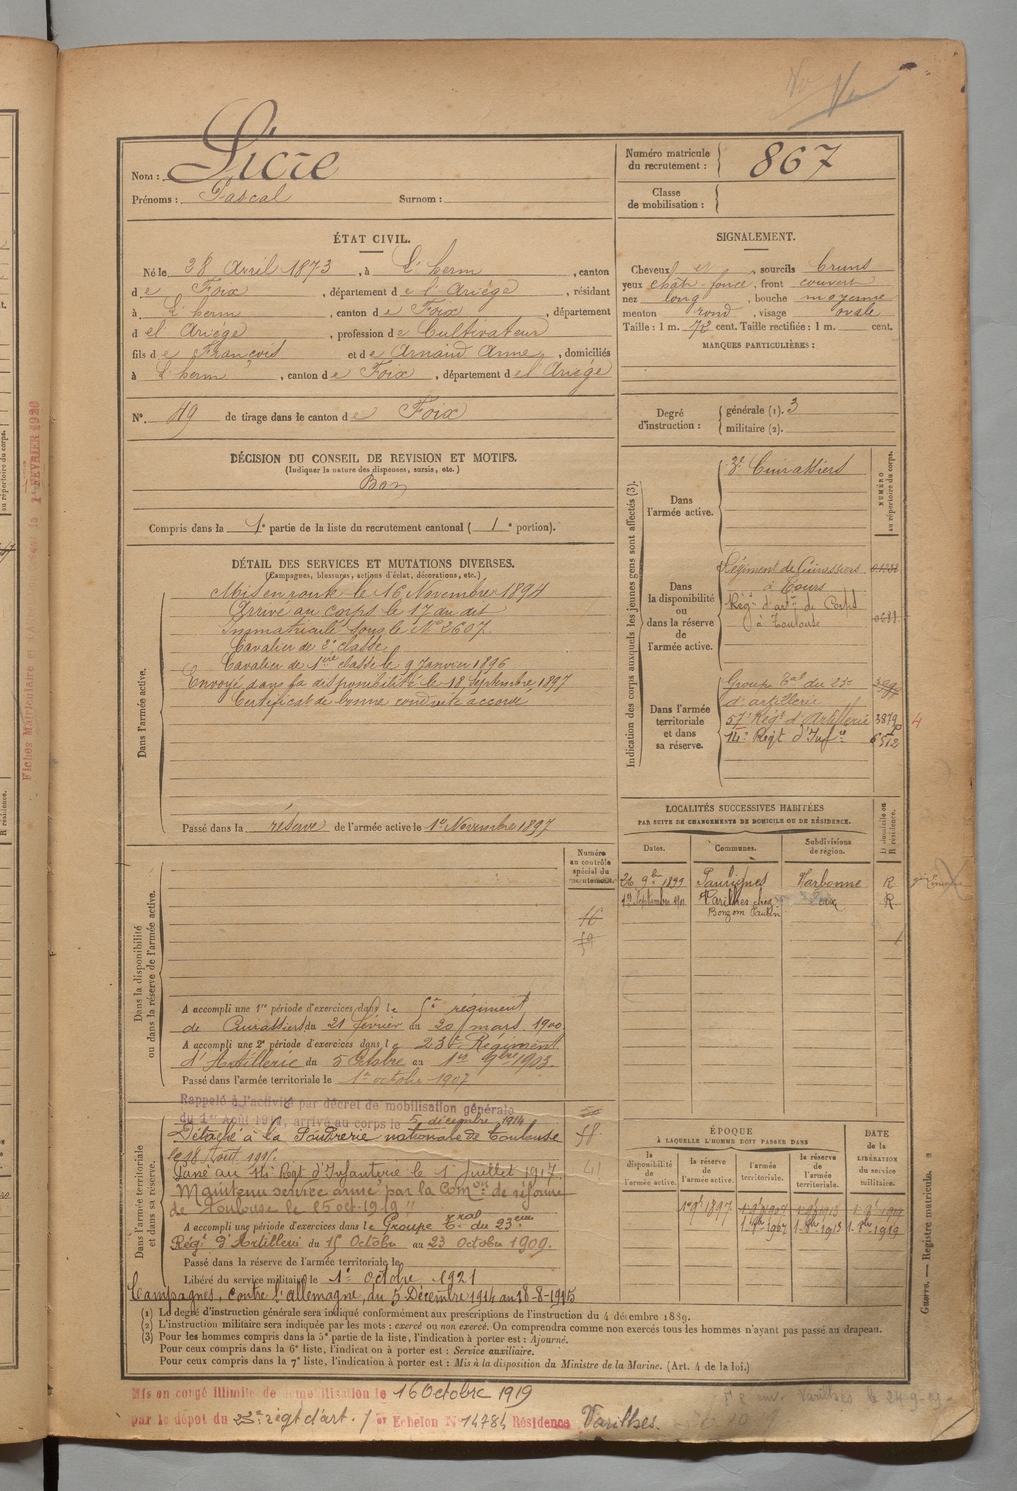 Nom : Sicre
Prénoms : Pascal Surnom :
Numéro matricule du recrutement : 867
Classe de mobilisation :
ÉTAT CIVIL.
Né le 28 Avril 1873, à L'herm, canton
de Foix, département de l'Ariège, résidant
à L'herm, canton de Foix, département
de l'Ariège, profession de Cultivateur
fils de François et de Arnaud Anne, domiciliés
à L'herm, canton de Foix, département de l'Ariège
N° 119 de tirage dans le canton de Foix
SIGNALEMENT.
Cheveux et, sourcils bruns
yeux chât. foncé, front couvert
nez long, bouche moyenne
menton rond, visage ovale
Taille : 1 m. 72 cent. Taille rectifiée : 1 m. cent.
MARQUES PARTICULIÈRES :
Degré d'instruction : générale (1). 3
militaire (2).
DÉCISION DU CONSEIL DE REVISION ET MOTIFS.
(Indiquer la nature des dispenses, sursis, etc.)
Bon
Compris dans la 1e partie de la liste du recrutement cantonal ( 1e portion).
DÉTAIL DES SERVICES ET MUTATIONS DIVERSES.
(Campagnes, blessures, actions d'éclat, décorations, etc.)
Dans l'armée active.
Mis en route le 16 Novembre 1894
Arrivé au corps le 17 du dit
Immatriculé sous le N° 2607
Cavalier de 2e classe
Cavalier de 1ère classe le 9 Janvier 1896
Envoyé dans la disponibilité le 18 Septembre 1897
Certificat de bonne conduite accordé
Passé dans la réserve de l'armée active le 1er Novembre 1897
Indication des corps auxquels les jeunes gens sont affectés (3).
NUMÉRO au répertoire du corps.
Dans l'armée active.
3e Cuirassiers
Dans la disponibilité ou dans la réserve de l'armée active.
Régiment de Cuirassiers
à Tours
Rég. d'arie de Corps
à Toulouse
Dans l'armée territoriale et dans sa réserve.
Groupe Tal du 23e
d'artillerie
57e Régt d'Artillerie 3879 4
14e Régt d'Infie
LOCALITÉS SUCCESSIVES HABITÉES
PAR SUITE DE CHANGEMENTS DE DOMICILE OU DE RÉSIDENCE.
Dates. Communes. Subdivisions de région. D domicile ou R résidence.
26 9bre 1899 Narbonne R
Varilhes chez Foix R
Numéro au contrôle spécial du recrutement.
Dans la disponibilité ou dans la réserve de l'armée active.
A accompli une 1re période d'exercices dans le régiment
de Cuirassiers du 21 février au 20 mars 1900
A accompli une 2e période d'exercices dans le 23e Régiment
d'Artillerie du 5 Octobre au 1er 9bre 1903.
Passé dans l'armée territoriale le 1er octobre 1907
Dans l'armée territoriale et dans sa réserve.
Rappelé à l'activité par décret de mobilisation générale
du 1er Août 1914, arrivé au corps le 5 décembre 1914
Détaché à la Poudrerie nationale de Toulouse
Passé au 14e Rgt d'Infanterie le 1er Juillet 1917.
Maintenu service armé "par la Comon de réforme
de Toulouse le 15 oct. 1919"
A accompli une période d'exercices dans le Groupe Tral du 23eme
Régt d'Artillerie du 15 Octobre au 23 Octobre 1909.
Passé dans la réserve de l'armée territoriale le
Libéré du service militaire le 1er Octobre 1921
Campagnes, contre l'Allemagne, du 5 Décembre 1914 au 18-8-1915
ÉPOQUE
À LAQUELLE L'HOMME DOIT PASSER DANS
la disponibilité de l'armée active. la réserve de l'armée active. l'armée territoriale. la réserve de l'armée territoriale.
DATE de la LIBÉRATION du service militaire.
(1) Le degré d'instruction générale sera indiqué conformément aux prescriptions de l'instruction du 4 décembre 1889.
(2) L'instruction militaire sera indiquée par les mots : exercé ou non exercé. On comprendra comme non exercés tous les hommes n'ayant pas passé au drapeau.
(3) Pour les hommes compris dans la 5e partie de la liste, l'indication à porter est : Ajourné.
Pour ceux compris dans la 6e liste, l'indication à porter est : Service auxiliaire.
Pour ceux compris dans la 7e liste, l'indication à porter est : Mis à la disposition du Ministre de la Marine. (Art. 4 de la loi.)
Guerre. — Registre matricule.
Mis en congé illimité de démobilisation le 16 Octobre 1919
par le dépôt du 23e régt d'art. 1er Echelon N° 14784 Résidence Varilhes.